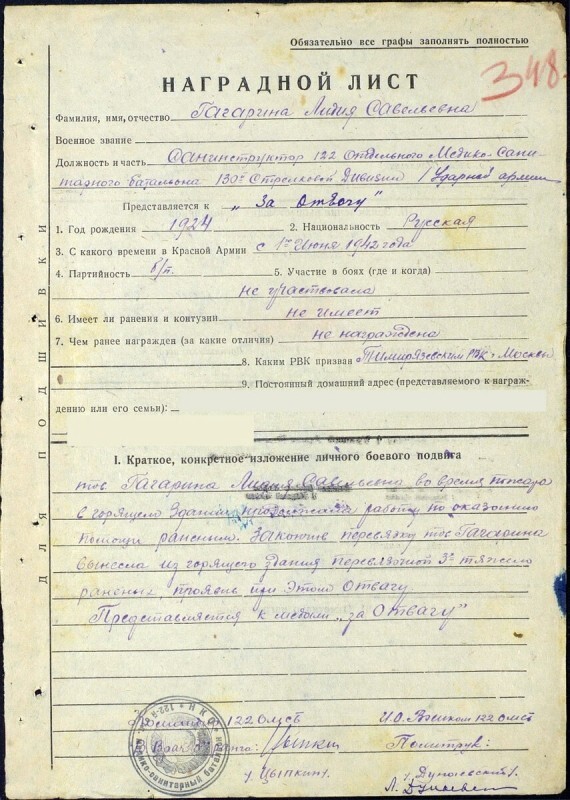 Обязательно все графы заполнять полностью
348
НАГРАДНОЙ ЛИСТ
Фамилия, имя, отчество Гагарина Лидия Савельевна
Военное звание
Должность и часть Санинструктор 122 Отдельного Медико-Сани-
тарного батальона 130й Стрелковой Дивизии 1 Ударной армии
Представляется к „За Отвагу"
1. Год рождения 1924 2. Национальность Русская
3. С какого времени в Красной Армии с 1го Июня 1942 года
4. Партийность б/п. 5. Участие в боях (где и когда)
не участвовала
6. Имеет ли ранения и контузии не имеет
7. Чем ранее награжден (за какие отличия) не награждена
8. Каким РВК призван Тимирязевским РВК г. Москвы
9. Постоянный домашний адрес (представляемого к награж-
дению или его семьи):
ДЛЯ ПОДШИВКИ
I. Краткое, конкретное изложение личного боевого подвига
тов Гагарина Лидия Савельевна во время пожара
в горящем здании продолжала работу по оказанию
помощи раненым. Закончив перевязку тов Гагарина
вынесла из горящего здания перевязочной 3х тяжело
раненых, проявив при этом Отвагу
Представляется к медали „за Отвагу"
122 ОМСБ И.О. Военком 122 омсб
Политрук:
/Цыпкин/ /Дунаевский/